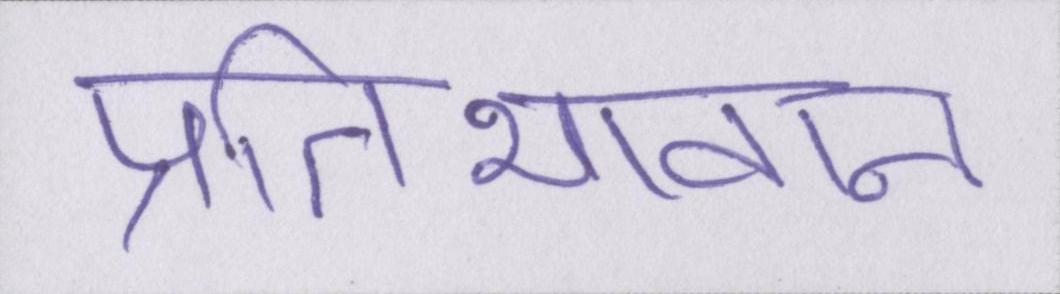 प्रतिभावान